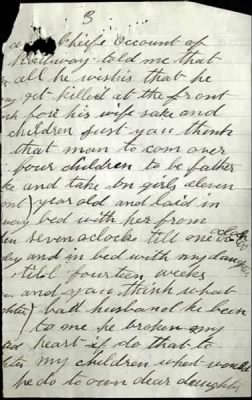 3
Chiefs Account of
told me that
all he wishis that he
get killed at the front
fore his wife sake and
children Just you think
that man to com over
four children to be father
and take on girls eleven
year old and laid in
bed with her from
seven oclock till one oclock
and in bed with my
fourteen weeks
and you think what
bad husband he been
to me he broken my
heart if do that to
my children what
he do to own dear